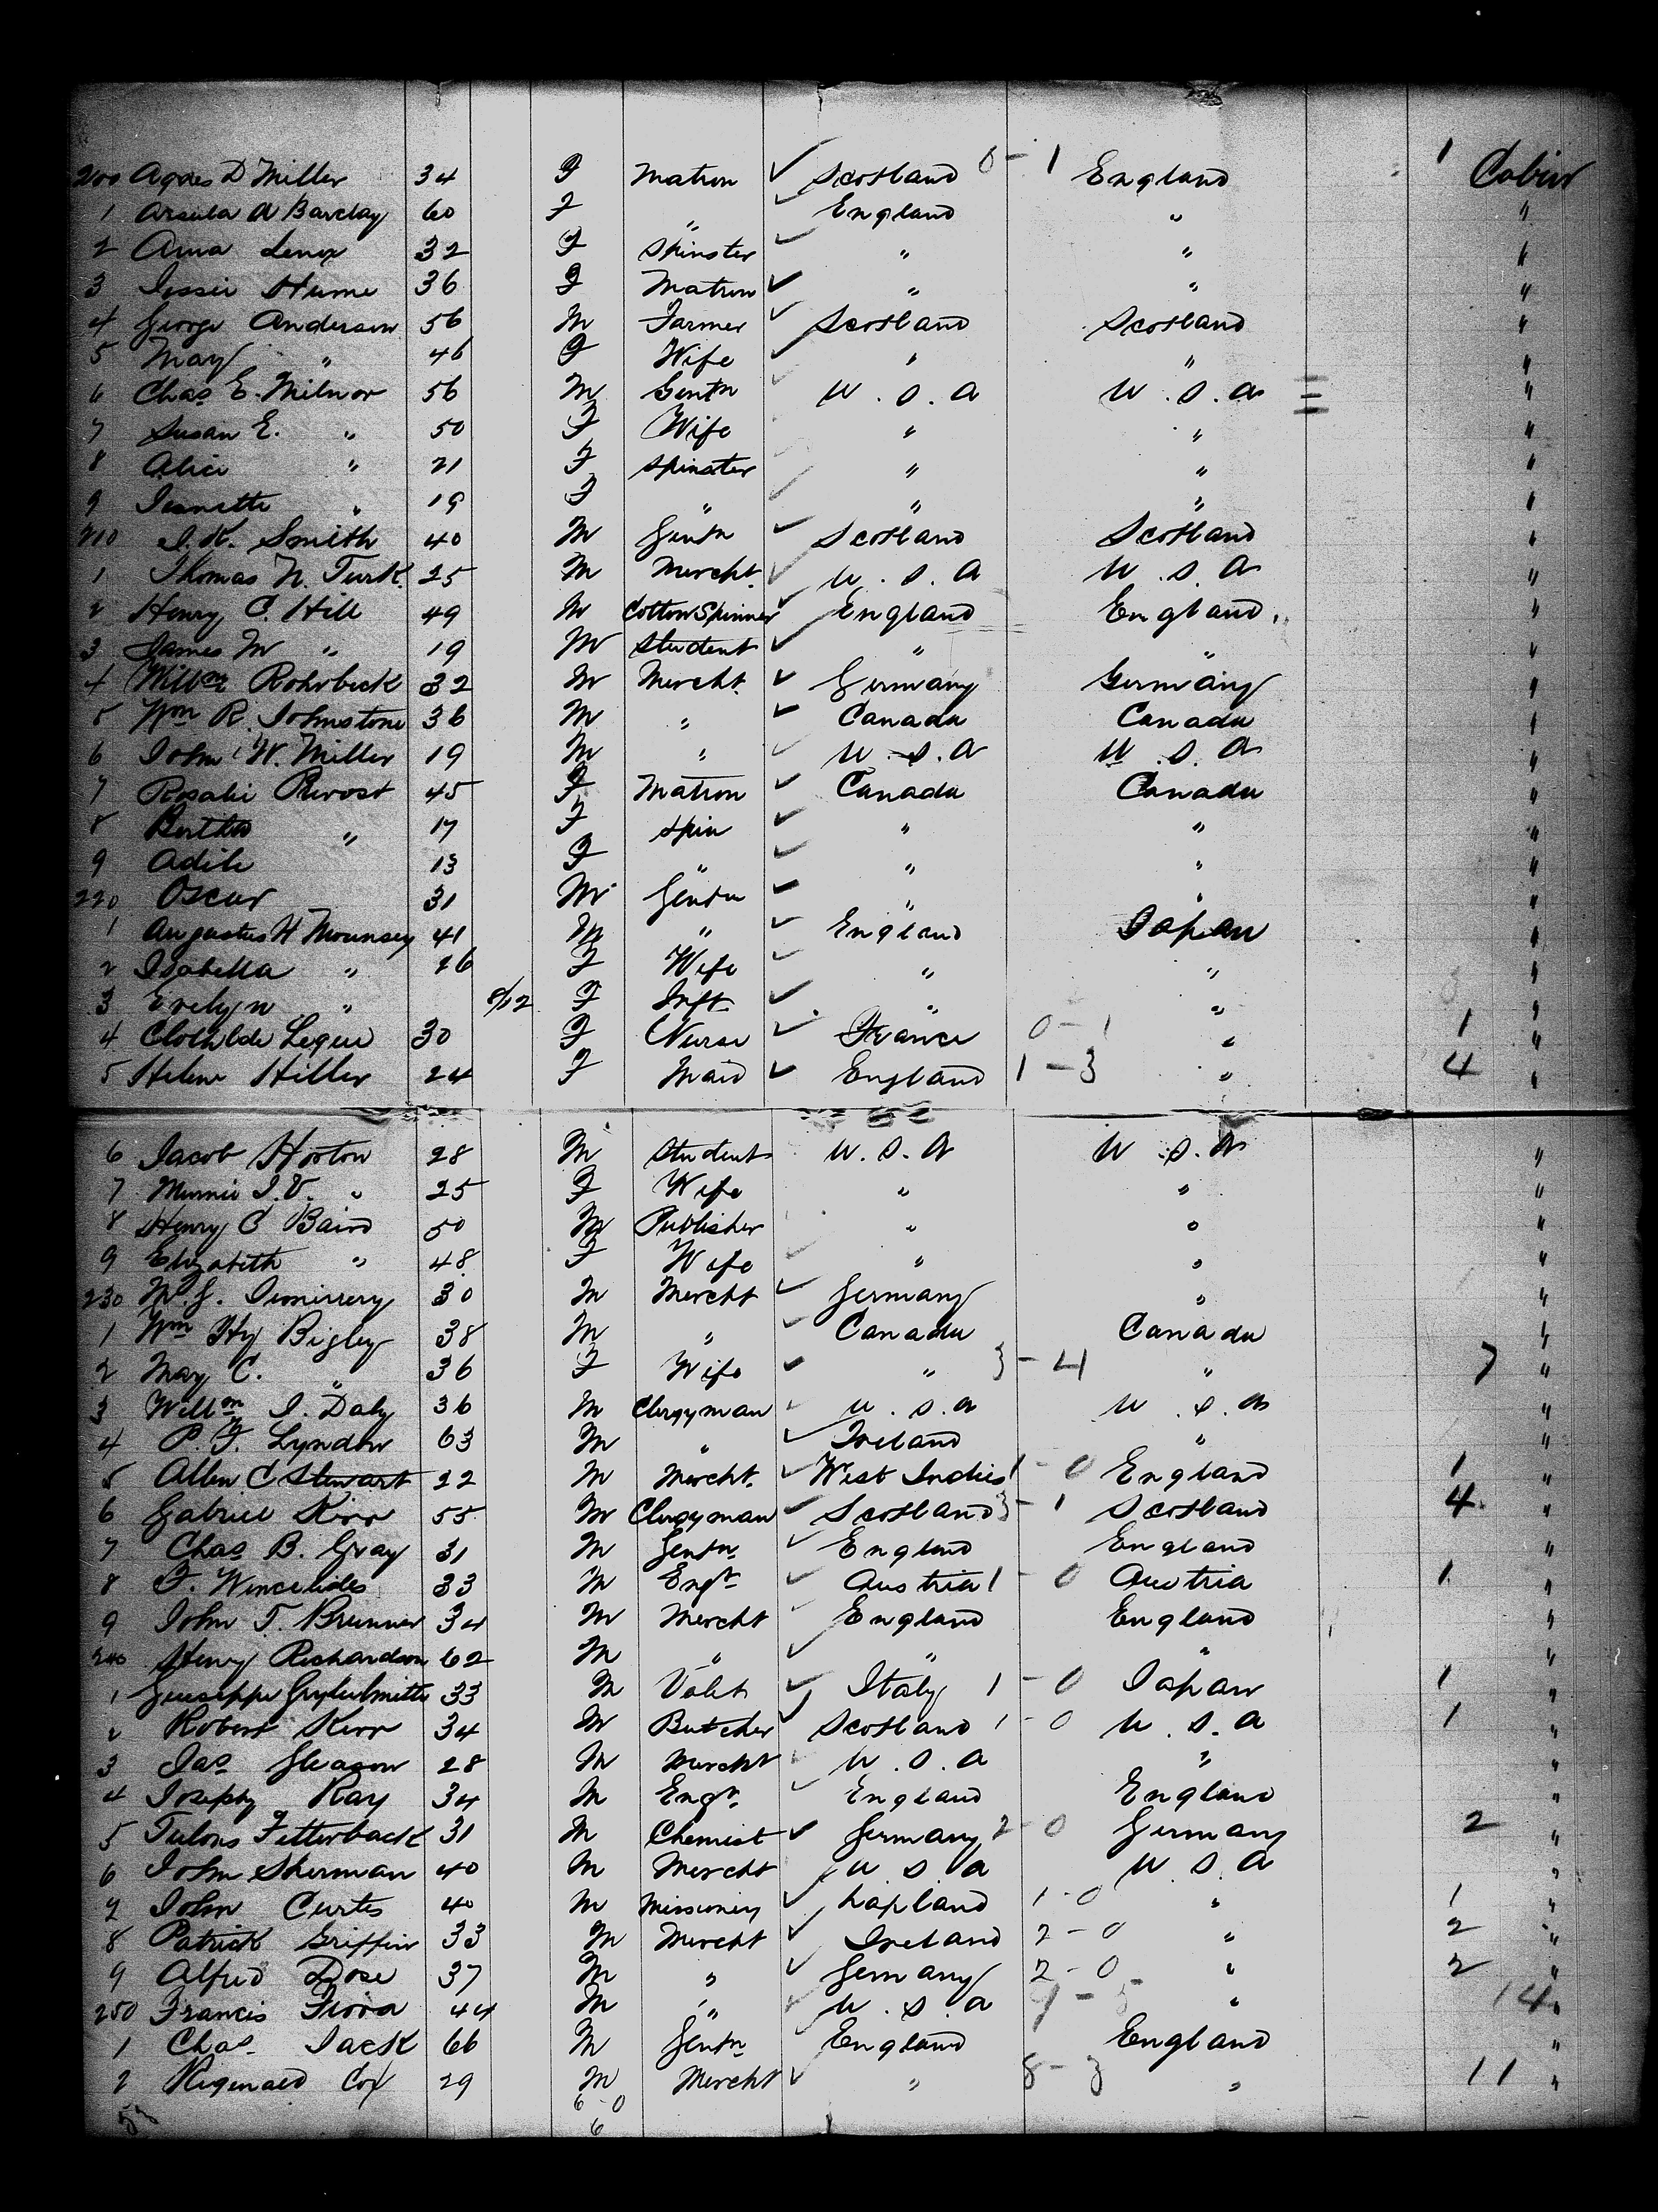 200 Agnes D Miller 34 F Matron ✓ Scotland 0 - 1 England 1 Cabin
1 Arsula A Barclay 60 F " ✓ England " "
2 Anna Lenox 32 F Spinster ✓ " " "
3 Jessie Hume 36 F Matron ✓ " " "
4 George Anderson 56 M Farmer ✓ Scotland Scotland "
5 May " 46 F Wife ✓ " " "
6 Chas E. Milnor 56 M Gentn ✓ U. S. A U. S. A "
7 Susan E. " 50 F Wife " " "
8 Alice " 21 F Spinster ✓ " " "
9 Jeanette " 19 F " ✓ " " "
210 J. K. Smith 40 M Gentn ✓ Scotland Scotland "
1 Thomas N. Turk 25 M Mercht. ✓ U. S. A U. S. A "
2 Henry C. Hill 49 M Cotton Spinner ✓ England England "
3 James M " 19 M Student ✓ " " "
4 Willm Rohrbeck 32 M Mercht. ✓ Germany Germany "
5 Wm R. Johnstone 36 M " ✓ Canada Canada "
6 John W. Miller 19 M " ✓ U. S. A U. S. A "
7 Rosalie Prevost 45 F Matron ✓ Canada Canada "
8 Bertha " 17 F Spin ✓ " " "
9 Adile 13 F " ✓ " " "
220 Oscar 31 M Gentn ✓ " " "
1 Augustus H Mounsey 41 M " ✓ England Japan "
2 Isabella " 26 F Wife ✓ " " "
3 Evelyn " 8/12 F Inft ✓ " " "
4 Clothilde Leque 30 F Nurse ✓ France 0 - 1 " 1 "
5 Helene Hiller 24 F Maid ✓ England 1 - 3 " 4 "
6 Jacob Horton 28 M Student U. S. A U. S. A "
7 Minnie J. V. " 25 F Wife " " "
8 Henry C Baird 50 M Publisher " " "
9 Elizabeth " 48 F Wife ✓ " " "
230 30 M Mercht ✓ Germany " "
1 Wm Hy Bigley 38 M " ✓ Canada Canada "
2 May C. " 36 F Wife ✓ " 3 - 4 " 7 "
3 Willm J. Daly 36 M Clergyman ✓ U. S. A U. S. A "
4 P. F. Lyndon 63 M " ✓ Ireland " "
5 Allen C Stewart 22 M Mercht. ✓ West Indies 1 - 0 England 1 "
6 Gabriel Kirr 55 M Clergyman ✓ Scotland 3 - 1 Scotland 4 "
7 Chas B. Gray 31 M Gentn ✓ England England "
8 F. 33 M Engr ✓ Austria 1 - 0 Austria 1 "
9 John T. Brunner 34 M Mercht ✓ England England "
240 Henry Richardson 62 M " ✓ " " "
1 Giuseppe 33 M Valet ✓ Italy 1 - 0 Japan 1 "
2 Robert Kerr 34 M Butcher ✓ Scotland 1 - 0 U. S. A 1 "
3 Jas Gleason 28 M Mercht ✓ U. S. A " "
4 Joseph Ray 34 M Engr. ✓ England England "
5 Fetterback 31 M Chemist ✓ Germany 2 - 0 Germany 2 "
6 John Sherman 40 M Mercht ✓ U. S. A U. S. A "
7 John Curtis 40 M Missionary ✓ Lapland 1 - 0 " 1 "
8 Patrick Griffin 33 M Mercht ✓ Ireland 2 - 0 " 2 "
9 Alfred Dose 37 M " ✓ Germany 2 - 0 " 2 "
250 Francis Flora 44 M " ✓ U. S. A 9 - 5 " 14 "
1 Chas. Jack 66 M Gentn ✓ England England "
2 Reginald Cox 29 M Mercht ✓ " 8 - 3 " 11 "
6 - 0
6